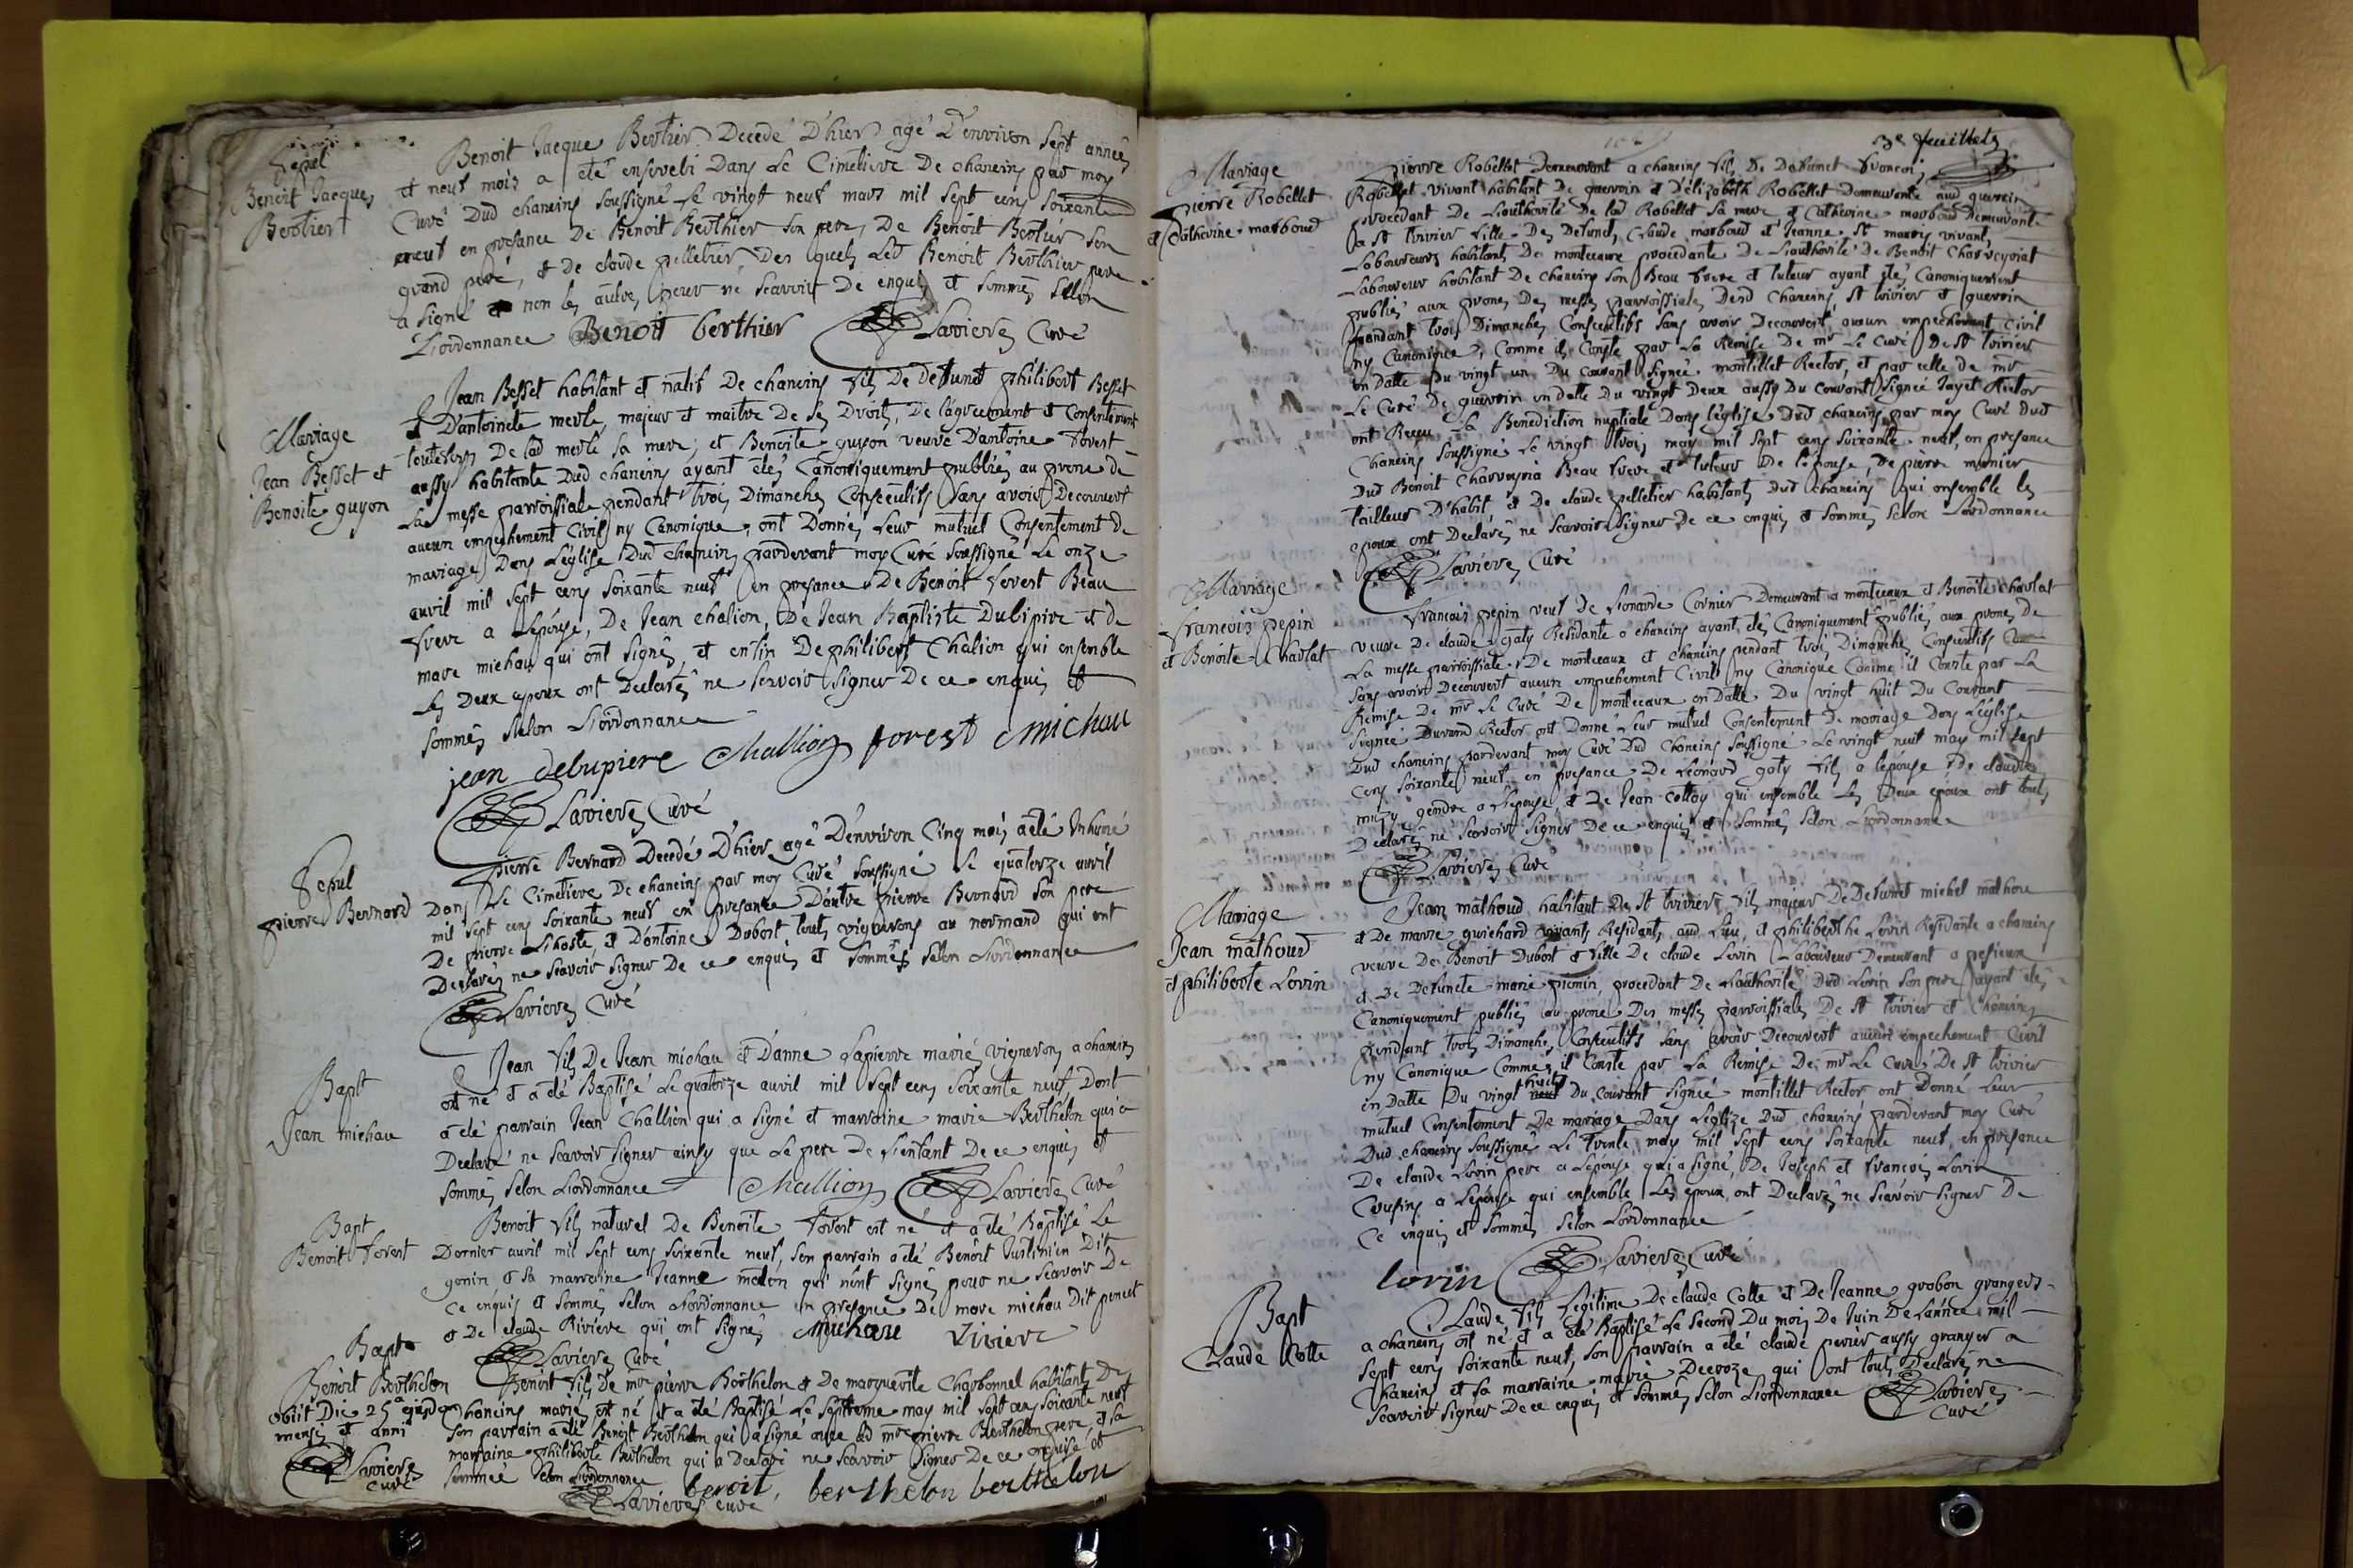 Sepul
Benoit Jacques
Berttiert
Benoit Jacque Berttier Decedé D'hier agé D'environ Sept années
et neuf mois a eté enseveli Dans Le Cimetiere De chaneins par moy
Curé Dud chaneins soussigné Le vingt neuf mars mil sept cens soixante
neuf en presance De Benoit Berthier son pere, De Benoit Bertier son
grand pere, et De claude pelletier Des quels Led Benoit Berthier pere
a signé non les autres pour ne scavoir De enquis et sommés sellon
L'ordonnance Benoit berthier Lavieres Curé
Mariage
Jean Besset et
Benoite guyon
Jean Besset habitant et natif De chaneins fils De defunt philibert Besset
et D'antoinete merle, majeur et maitre De ses Droits, De l'agreement et Consentement
touteforis De lad merle sa mere; et Benoite guyon veuve D'antoine forest
aussy habitante Dud chaneins ayant étés Canoniquement publiés au prone de
La messe parroissiale pendant trois Dimanches Consecutifs sans avoir Decouvert
aucun empechement Civil ny Canonique, ont Donnés Leur mutuel Consentement de
mariage Dans L'eglise Dud chaneins pardevant moy Curé soussigné Le onze
avril mil sept cens soixante neuf en presance De Benoit forest Beau
frere a L'epouse, De Jean chalion, De Jean Baptiste Dubipire et de
marc michau qui ont signés, et enfin De philibert Chalion qui ensemble
Les Deux epoux ont Declarés ne scavoir signer De ce enquis et
sommés sellon L'ordonnance
jean debupiere Challion forest michau
Lavieres Curé
Sepul
pierre Bernard
pierre Bernard Decedé D'hier agé D'environ Cinq mois a eté Inhumé
Dans Le Cimetiere De chaneins par moy Curé soussigné Le quatorze avril
mil sept cens soixante neuf en presance D'autre pierre Bernard son pere
De pierre L'hoste, et D'antoine Dubost touts vignerons au normand qui ont
Declarés ne scavoir signer De ce enquis et sommés selon L'ordonnance
Lavieres Curé
Bapt
Jean michau
Jean fils De Jean michau et D'anne Lapierre mariés vignerons a chaneins
est né et a eté Baptisé Le quatorze avril mil sept cens soixante neuf Dont
a eté parrain Jean Challion qui a signé et marraine marie Berthelon qui a
Declaré ne scavoir signer ainsy que Le pere De L'enfant De ce enquis et
sommés selon L'ordonnance Challion Lavieres Curé
Bapt
Benoit forest
Benoit fils naturel De Benoite forest est né et a eté Baptisé Le
Dernier avril mil sept cens soixante neuf, son parrain a eté Benoit Justinien Dit
gonin et sa marreine Jeanne melon qui n'ont signés pour ne scavoir De
ce enquis et sommés selon L'ordonnance en presance De marc michau Dit poncet
et De claude Riviere qui ont signés michau riviere
Lavieres Curé
Bapt
Benoit Berthelon
obiit Die 25a ejusd
mensis et anni
Lavieres
curé
Benoit fils De mre pierre Berthelon et De marguerite Charbonnel habitants De
Chaneins mariés est né et a eté Baptisé Le septieme may mil sept cens soixante neuf
son parrain a eté Benoit Berthelon qui a signé avec led mre pierre Berthelon pere, et sa
marraine philiberte Berthelon qui a Declaré ne scavoir signer De ce enquise et
sommée selon L'ordonnance benoit berthelon berthelon
Lavieres curé
3e feuillets
Mariage
pierre Robellet
et Catherine marboud
pierre Robellet Demeurant a chaneins fils De Defunct francois
Robellet vivant habitant De guerrein et D'elizabeth Robellet Demeurante aud guerrein
procedant De L'authorité De lad Robellet sa mere et Catherine marboud Demeurante
a St trivier fille Des Defuncts Claude marboud et Jeanne St martin vivant
Laboureurs habitants De montceaux procedante De L'authorité De Benoit Charveyriat
Laboureur habitant De chaneins son Beau frere et tuteur ayant étés Canoniquement
publiés aux prones Des messes parroissiales Desd Chaneins St trivier et guerrein
pendant trois Dimanches Consecutifs sans avoir Decouvert aucun empechement Civil
ny Canonique, Comme il Conste par La Remise De mr Le Curé De St trivier
en Datte Du vingt un Du courant signée montillet Rector, et par celle De mr
Le Curé De guerrein en datte Du vingt Deux aussy Du Courant signée Jayet Rector
ont Receu La Benediction nuptiale Dans l'eglise Dud chaneins par moy Curé Dud
Chaneins soussigné Le vingt trois may mil sept cens soixante neuf, en presance
Dud Benoit Charveyria Beau frere et tuteur De l'epouse, De pierre munier
tailleur D'habit et De claude pelletier habitants Dud Chaneins qui ensemble les
epoux ont Declarés ne scavoir signer De ce enquis et sommés selon L'ordonnance
Lavieres Curé
Mariage
francois pepin
et Benoite Charlat
francois pepin veuf De Lionarde Cornier Demeurant a montceaux et Benoite charlat
veuve De claude gaty Residante a chaneins ayant étés Canoniquement publiés aux prones De
La messe parroissiale De montceaux et chaneins pendant trois Dimanches Consecutifs
sans avoir Decouvert aucun empechement Civil ny Canonique Comme il Conste par La
Remise De mr Le Curé De montceaux en Datte Du vingt huit Du Courant
signée Durand Rector ont Donné Leur mutuel Consentement De mariage Dans L'eglise
Dud chaneins pardevant moy Curé Dud Chaneins soussigné Le vingt neuf may mil sept
cens soixante neuf en presance De Leonard gaty fils a l'epouse, De claude
gendre a L'epouse, et De Jean Cottey qui ensemble Les Deux epoux ont touts
Declarés ne scavoir signer De ce enquis et sommés selon L'ordonnance
Lavieres Curé
Mariage
Jean mathoud
et philiberte Lorin
Jean mathoud habitant De St trivier fils majeur De Defunct michel mathou
et De marie guichard vivants Residants aud Lieu, et philiberthe Lorin Residante a chaneins
veuve De Benoit Dubost et fille De claude Lorin Laboureur Demeurant a pesieux
et De Defuncte marie piemin, procedant De L'authorité Dud Lorin son pere, ayant étés
Canoniquement publiés au prone Des messes parroissiales De St trivier et Chaneins
pendant trois Dimanches Consecutifs sans avoir Decouvert aucun empechement Civil
ny Canonique Comme il Conste par La Remise De mr Le Curé De St trivier
en Datte Du vingt huit Du Courant signée montillet Rector ont Donné Leur
mutuel Consentement De mariage Dans L'eglize Dud chaneins pardevant moy Curé
Dud chaneins soussigné Le trente may mil sept cens soixante neuf, en presance
De claude Lorin pere a L'epouse qui a signé, De Joseph et francois Lorin
Cousins a L'epouse qui ensemble Les epoux ont Declarés ne scavoir signer De
Ce enquis et sommés selon L'ordonnance
lorin Lavieres Curé
Bapt
Claude Cotte
Claude fils Legitime De claude Cotte et De Jeanne grobon grangers
a chaneins est né et a eté Baptisé Le second Du mois De Juin De L'année mil
sept cens soixante neuf, son parrain a eté claude perier aussy granger a
Chaneins et sa marraine marie Decroze qui ont touts Declarés ne
scavoir signer De ce enquis et sommés selon L'ordonnance Lavieres
Curé